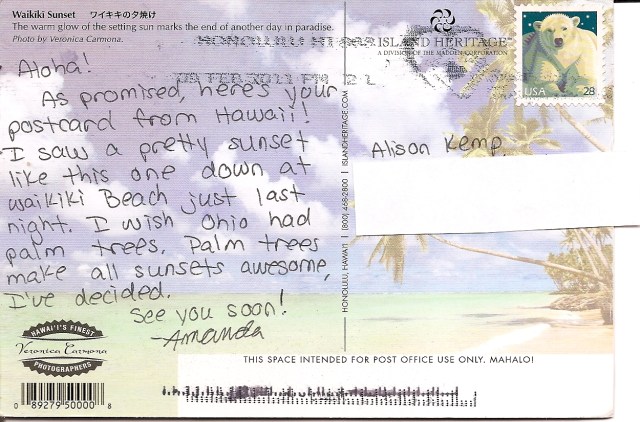 Waikiki Sunset ワイキキの夕焼け
The warm glow of the setting sun marks the end of another day in paradise.
Photo by Veronica Carmona.
Aloha!
As promised, here's your
postcard from Hawaii!
I saw a pretty sunset
like this one down at
waikiki Beach just last
night. I wish Ohio had
palm trees. Palm trees
make all sunsets awesome,
I've decided.
See you soon!
-Amanda
HAWAI'I'S FINEST
Veronica Carmona
PHOTOGRAPHERS
0 89279 50000 8
HONOLULU, HAWAI'I | (800) 468-2800 | ISLANDHERITAGE.COM
HONOLULU HI
ISLAND HERITAGE
A DIVISION OF THE MADDEN CORPORATION
FEB 2011 PM
USA 28
Alison Kemp
THIS SPACE INTENDED FOR POST OFFICE USE ONLY. MAHALO!